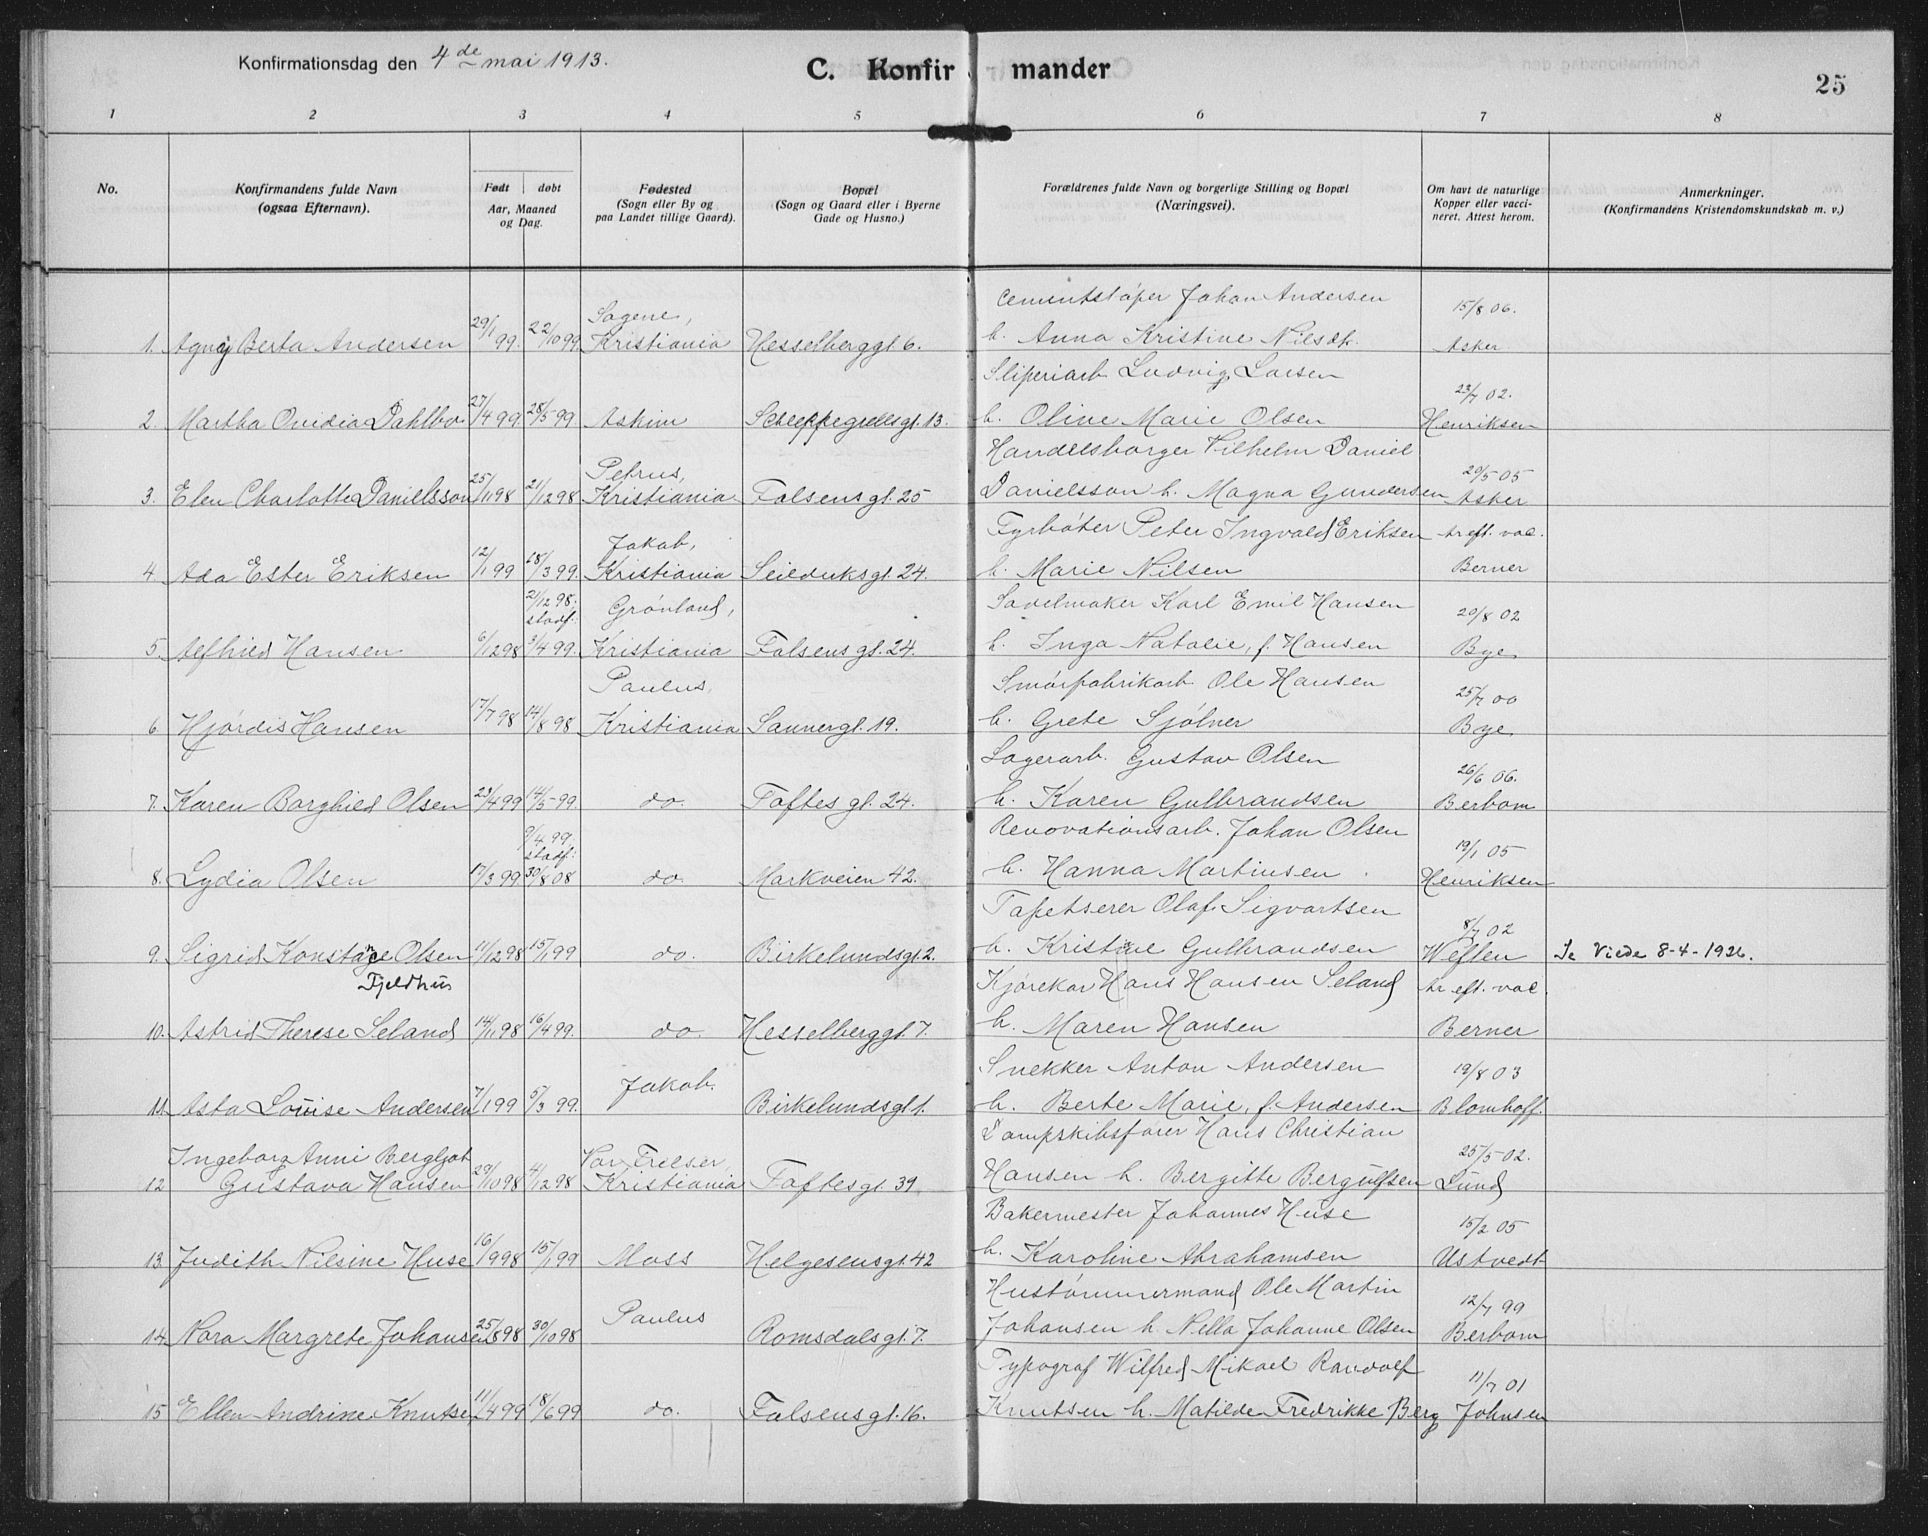 Konfirmationsdag den 4de mai 1913.
C. Konfir mander
25
1 2 3 4 5 6 7 8
No.
Konfirmandens fulde Navn
(ogsaa Efternavn).
Født døbt
Aar, Maaned
og Dag.
Fødested
(Sogn eller By og
paa Landet tillige Gaard).
Bopæl
(Sogn og Gaard eller i Byerne
Gade og Husno.)
Forældrenes fulde Navn og borgerlige Stilling og Bopæl
(Næringsvei).
Om havt de naturlige
Kopper eller vacci-
neret. Attest herom.
Anmerkninger.
(Konfirmandens Kristendomskundskab m. v.)
Sagene, Cementstøper Johan Andersen 15/8 06.
1. Berta Andersen 29/1 99. 22/10 99 Kristiania Hesselberggt. 6. h. Anna Kristine Nilsdt. Asker
Sliperiarb Ludvig Larsen 23/7 02.
2. Martha Ovidia Dahlbo 27/4 99. 28/5 99 Askim Schleppegrellsgt. 13. h. Oline Marie Olsen Henriksen
Petrus, Handelsborger Vilhelm Daniel 29/5 05
3. Elen Charlotte Danielsson 25/11 98 21/12 98 Kristiania Falsens gt. 25 Danielsson h. Magna Gundersen Asker
Jakob, Fyrbøter Peter Ingvald Eriksen tr eft. vac.
4. Ada Ester Eriksen 12/1 99 18/3 99. Kristiania Seilduksgt. 24. h. Marie Nilsen Berner
21/12 98. stadf: Grønland, Sadelmaker Karl Emil Hansen 29/8 02
5. Alfhild Hansen 6/12 98 3/4 99. Kristiania Falsens gt. 24. h. Inga Natalie, f. Hansen Bye
Paulus, Smørfabrikarb Ole Hansen 25/7 00
6 Hjørdis Hansen 17/7 98 14/8 98 Kristiania Sannergt. 19. h. Grete Sjølner Bye
Lagerarb. Gustav Olsen 26/6 06.
7. Karen Borghild Olsen 23/4 99 14/5 99. do. Toftes gt. 24. h. Karen Gulbrandsen Berbom
9/4 99. stadf: Renovationsarb. Johan Olsen 19/1 05
8. Lydia Olsen 17/3 99 30/8 08 do. Markveien 42. h. Hanna Martinsen Henriksen
Tapetserer Olaf Sigvartsen 8/7 02
9. Sigrid Konstance Olsen 11/12 98 15/1 99 do. Birkelundsgt. 2. h. Kristine Gulbrandsen Weflen Se Viede 8-4-1926.
Fjeldhus Kjørekar Hans Hansen Seland tr eft. vac.
10. Astrid Therese Seland 14/11 98 16/4 99. do Hesselberggt. 7. h. Maren Hansen Berner
Jakob. Snekker Anton Andersen 19/8 03
11. Asta Louise Andersen 7/1 99 5/3 99. Birkelundsgt. 1. h. Berte Marie, f. Andersen Blomhoff.
Ingeborg Anni Bergljot Vor Frelser, Dampskibsfører Hans Christian 25/5 02.
12 Gustava Hansen 29/10 98 4/12 98 Kristiania Toftes gt. 39. Hansen h. Bergitte Bergulfsen Lund
Bakermester Johannes Huse 15/2 05
13. Judith Nilsine Huse 16/9 98 15/1 99 Moss Helgesensgt. 42 h. Karoline Abrahamsen Ustvedt
Paulus Hustømmermand Ole Martin 12/7 99
14. Nora Margrete Johansen 25/8 98 30/10 98 Romsdalsgt. 7. Johansen h. Nella Johanne Olsen Berbom
Typograf Wilfred Mikael Randolf 11/7 01
15 Ellen Andrine Knutsen 11/4 99 18/6 99 do. Falsens gt. 16. Knutsen h. Matilde Fredrikke Berg Johnsen